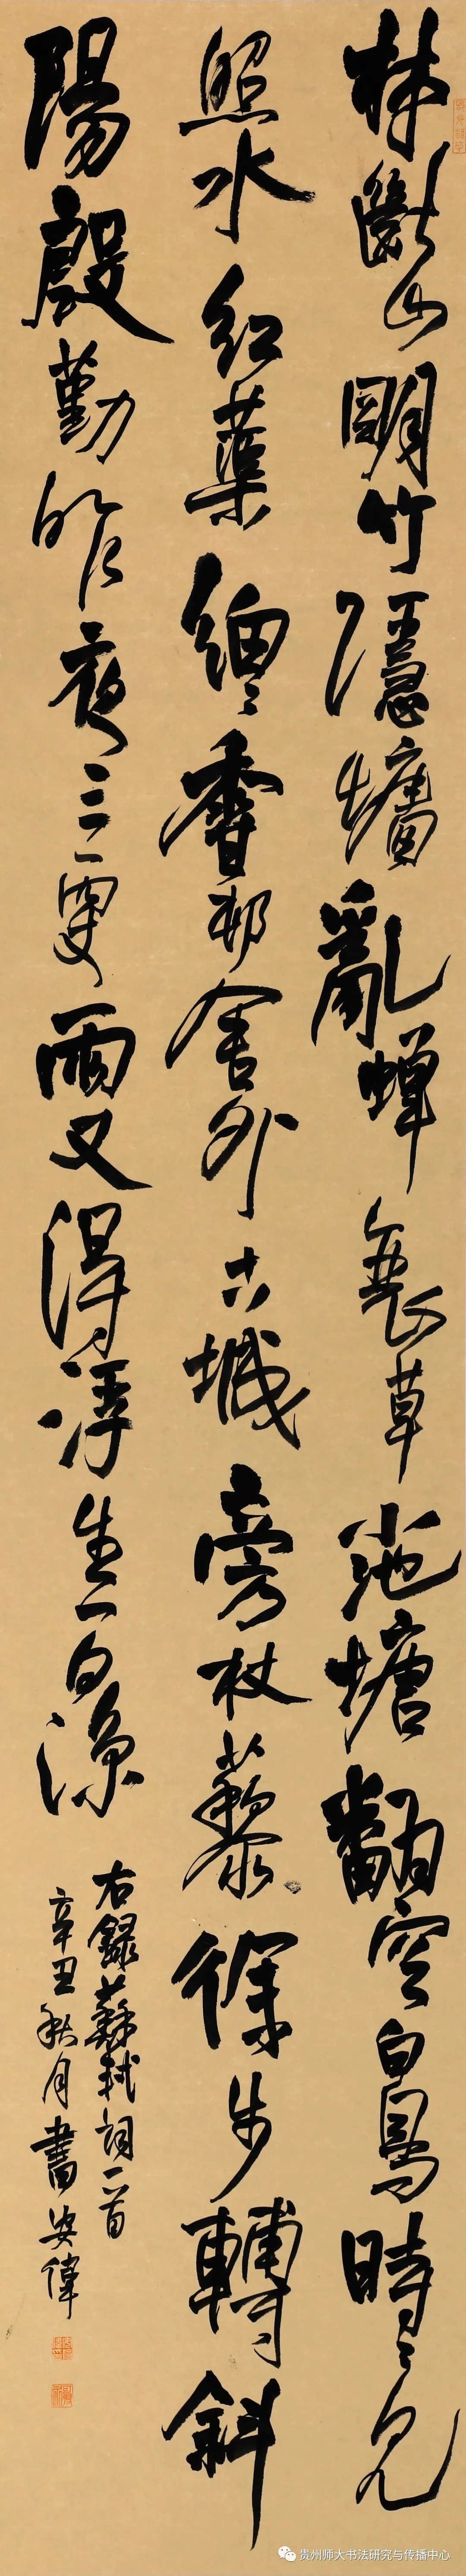 林斷山明竹隱墻亂蟬衰草小池塘翻空白鳥時々見
照水紅蕖細々香邨舍外古城旁杖藜徐步轉斜
陽殷勤昨夜三更雨又得浮生一日涼
右錄蘇軾詞一首
辛丑秋月書安偉
贵州师大书法研究与传播中心